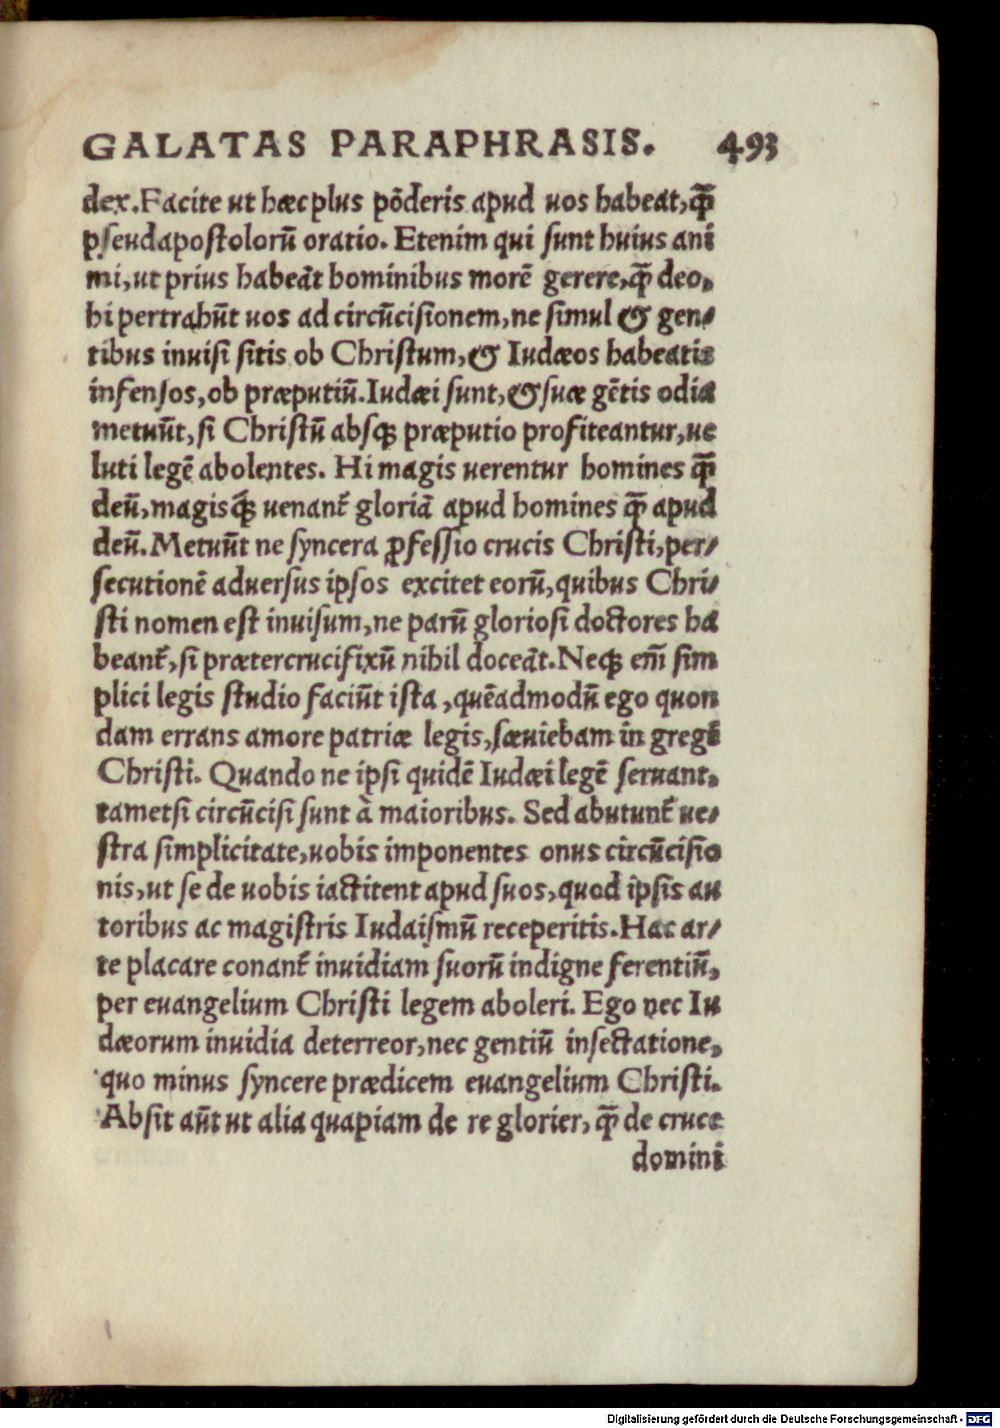 GALATAS PARAPHRASIS. 493
dex. Facite ut hæc plus põderis apud uos habeat, q̃
pseudapostolorũ oratio. Etenim qui sunt huius ani
mi, ut prius habeãt hominibus morẽ gerere, q̃ deo,
hi pertrahũt uos ad circũcisionem, ne simul & gen/
tibus inuisi sitis ob Christum, & Iudæos habeatis
infensos, ob præputiũ. Iudæi sunt, & suæ gẽtis odia
metuũt, si Christũ absq; præputio profiteantur, ue
luti legẽ abolentes. Hi magis uerentur homines q̃
deũ, magisq́; uenant̃ gloriã apud homines q̃ apud
deũ. Metuũt ne syncera ꝓfessio crucis Christi, per/
secutionẽ aduersus ipsos excitet eorũ, quibus Chri/
sti nomen est inuisum, ne parũ gloriosi doctores ha
beant̃, si præter crucifixũ nihil doceãt. Neq; em̃ sim
plici legis studio faciũt ista, quẽadmodũ ego quon
dam errans amore patriæ legis, sæuiebam in gregẽ
Christi. Quando ne ipsi quidẽ Iudæi legẽ seruant,
tametsi circũcisi sunt à maioribus. Sed abutunt̃ ue/
stra simplicitate, uobis imponentes onus circũcisio
nis, ut se de uobis iactitent apud suos, quod ipsis au
toribus ac magistris Iudaismũ receperitis. Hac ar/
te placare conant̃ inuidiam suorũ indigne ferentiũ,
per euangelium Christi legem aboleri. Ego nec Iu
dæorum inuidia deterreor, nec gentiũ insectatione,
quo minus syncere prædicem euangelium Christi.
Absit aũt ut alia quapiam de re glorier, q̃ de cruce
domini
Digitalisierung gefördert durch die Deutsche Forschungsgemeinschaft - DFG